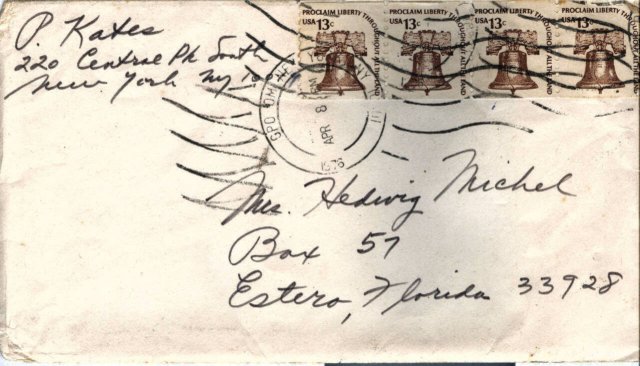 P. Kates
220 Central Pk South
New York NY
PROCLAIM LIBERTY THROUGHOUT ALL THE LAND
USA 13c
PROCLAIM LIBERTY THROUGHOUT ALL THE LAND
USA 13c
PROCLAIM LIBERTY THROUGHOUT ALL THE LAND
USA 13c
PROCLAIM LIBERTY THROUGHOUT ALL THE LAND
USA 13c
GPO
NY
PM
APR 8
1976
Mrs. Hedwig Michel
Box 57
Estero, Florida 33928